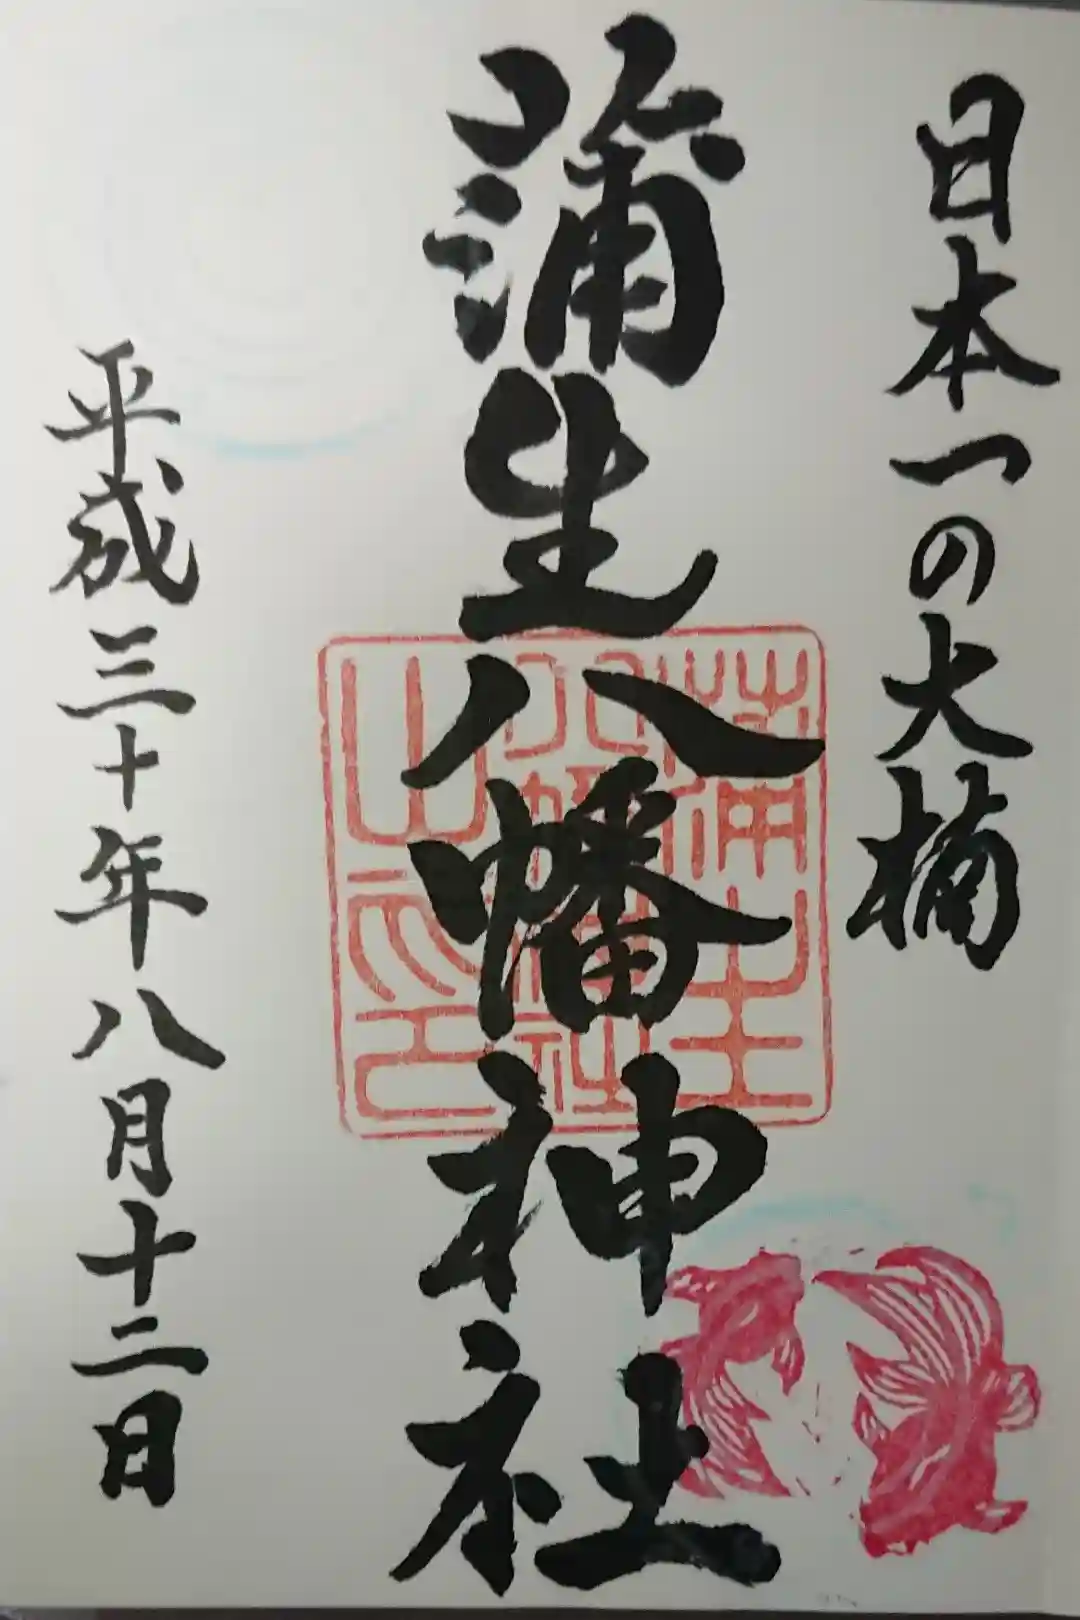 日本一の大楠
蒲生八幡神社
蒲生
八幡神社
之印
平成三十年八月十二日